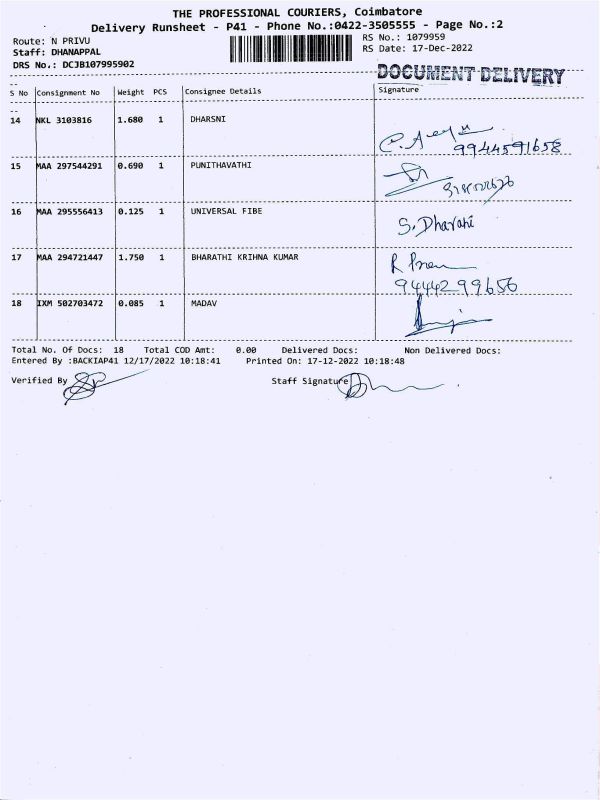 THE PROFESSIONAL COURIERS, Coimbatore
Delivery Runsheet - P41 - Phone No.:0422-3505555 - Page No.:2
Route: N PRIVU RS No.: 1079959
Staff: DHANAPPAL RS Date: 17-Dec-2022
DRS No.: DCJB107995902
DOCUMENT DELIVERY
S No Consignment No Weight PCS Consignee Details Signature
14 NKL 3103816 1.680 1 DHARSNI
9944591658
15 MAA 297544291 0.690 1 PUNITHAVATHI
16 MAA 295556413 0.125 1 UNIVERSAL FIBE
S. Dharani
17 MAA 294721447 1.750 1 BHARATHI KRIHNA KUMAR
9444299656
18 IXM 502703472 0.085 1 MADAV
Total No. Of Docs: 18 Total COD Amt: 0.00 Delivered Docs: Non Delivered Docs:
Entered By :BACKIAP41 12/17/2022 10:18:41 Printed On: 17-12-2022 10:18:48
Verified By Staff Signature